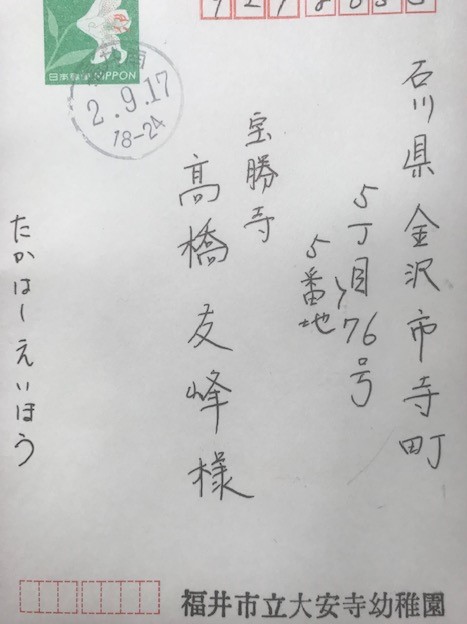 日本郵便 NIPPON
2.9.17
18-24
石川県金沢市寺町
5丁目〜76号
5番地
宝勝寺
高橋友峰様
たかはしえいほう
福井市立大安寺幼稚園